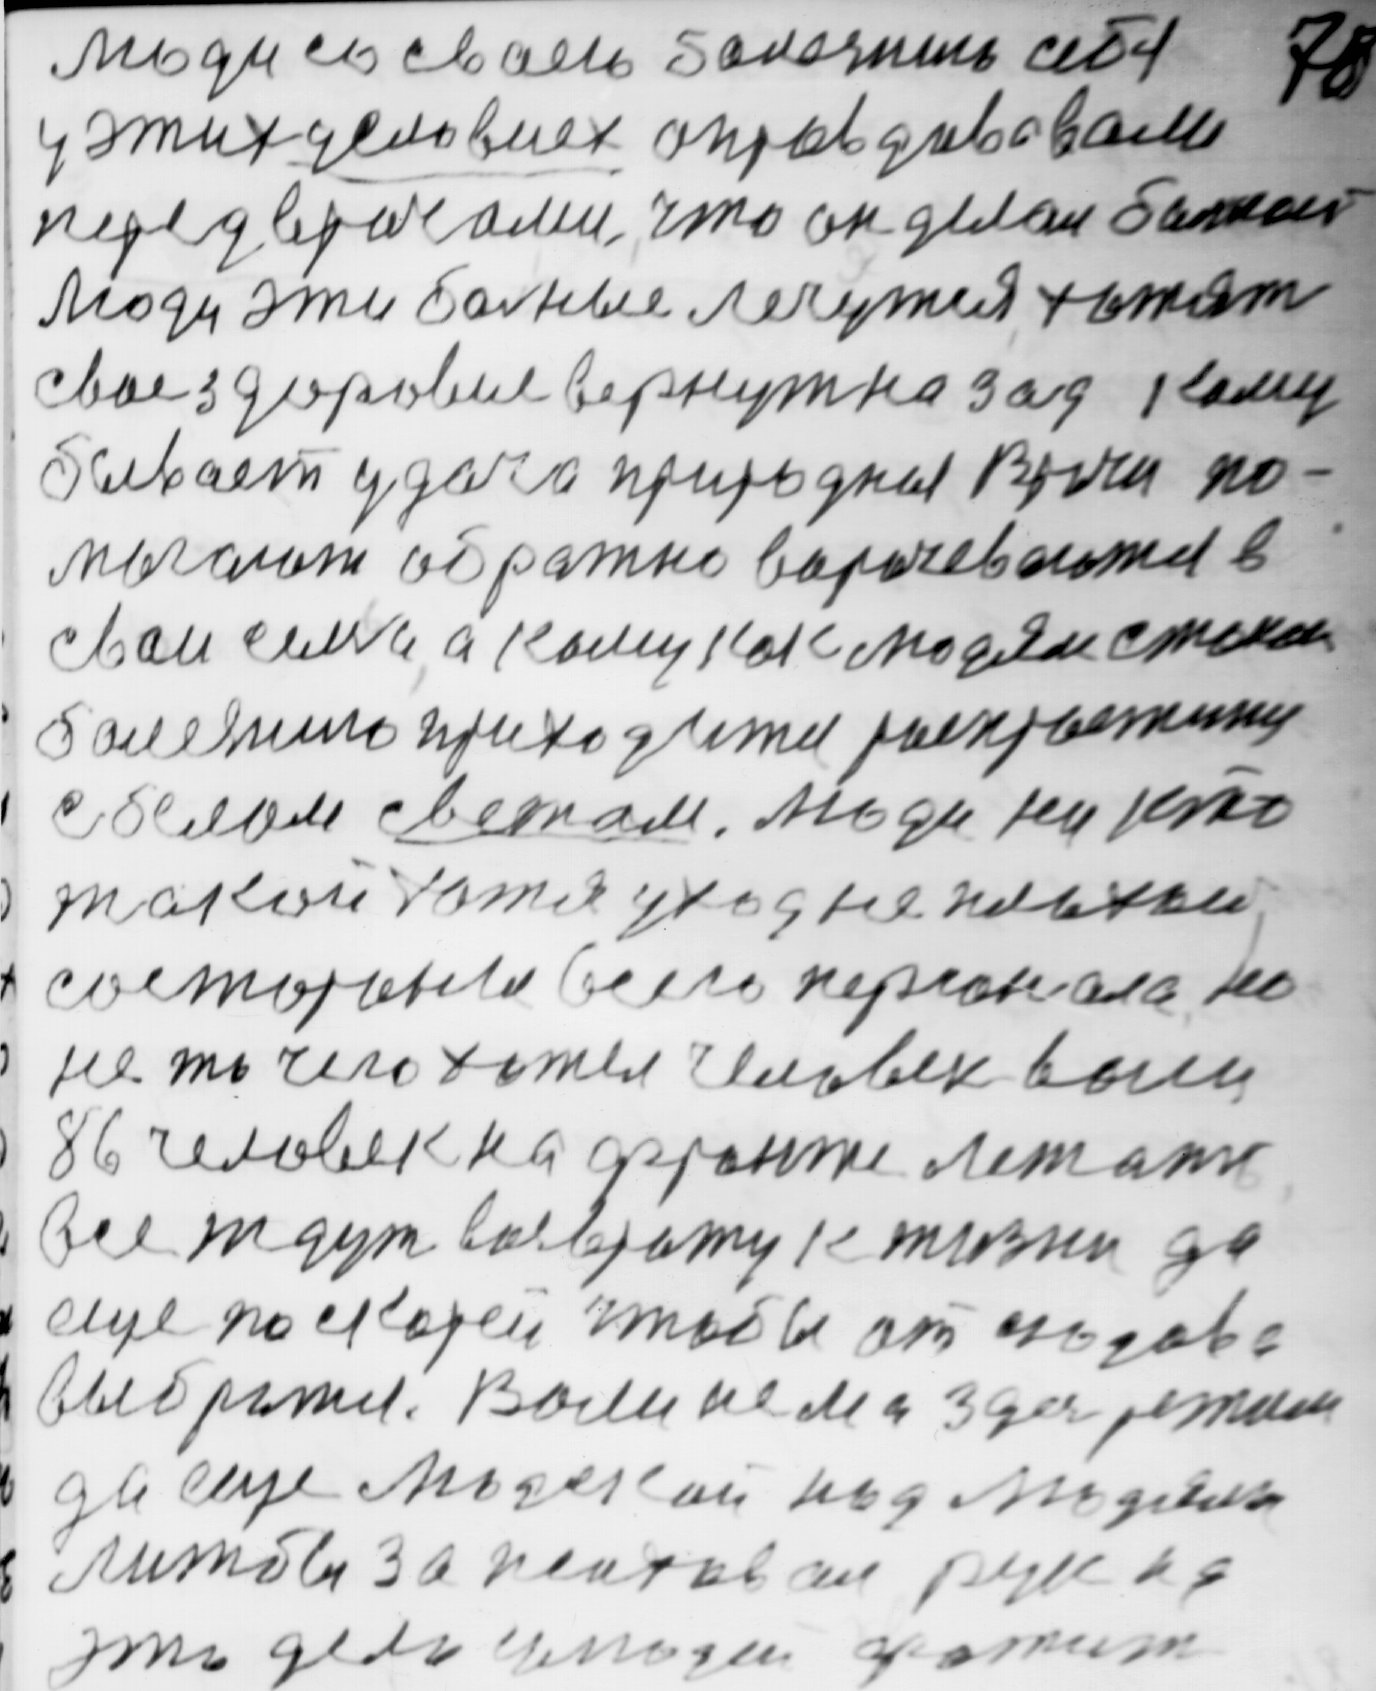 78
люди со сваеюболезнию себя
у этих условиех оправдовавали
перед врачами, что он делал больной
Люди эти больные лечутся, хотят
свое здоровие вернут назад кому
бывает удача природная Врачи по-
могают обратно ворочеваются в
свои семи, а кому как людям с такою
болезнию приходится роспроститу
с белом светом. Люди ни кто
такой хотя уход не плохой
состораныи всего персонала, но
не то чего хотел человек воли
86 человек на фронте летать
Все ждут возврату к жизни да
еще поскорей чтобы от сюдова
выбратся. Воли нема здес режим
да еще людской над людями
Лишбы запихавал рук на
это дело у людей хватит